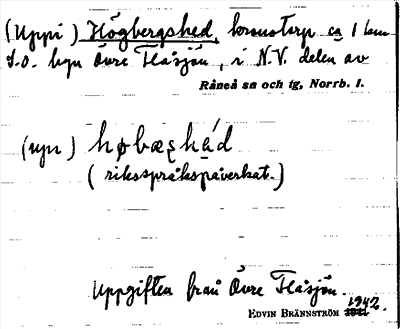 (Uppi) Högbergshed, kronotorp ca 1 km
S.O. byn Övre Flåsjön, i N.V. delen av
Råneå sn och tg, Norrb. l.
(upp)
(riksspråkspåverkat.)
Uppgiften från Övre Flåsjön.
EDVIN BRÄNNSTRÖM 1942.